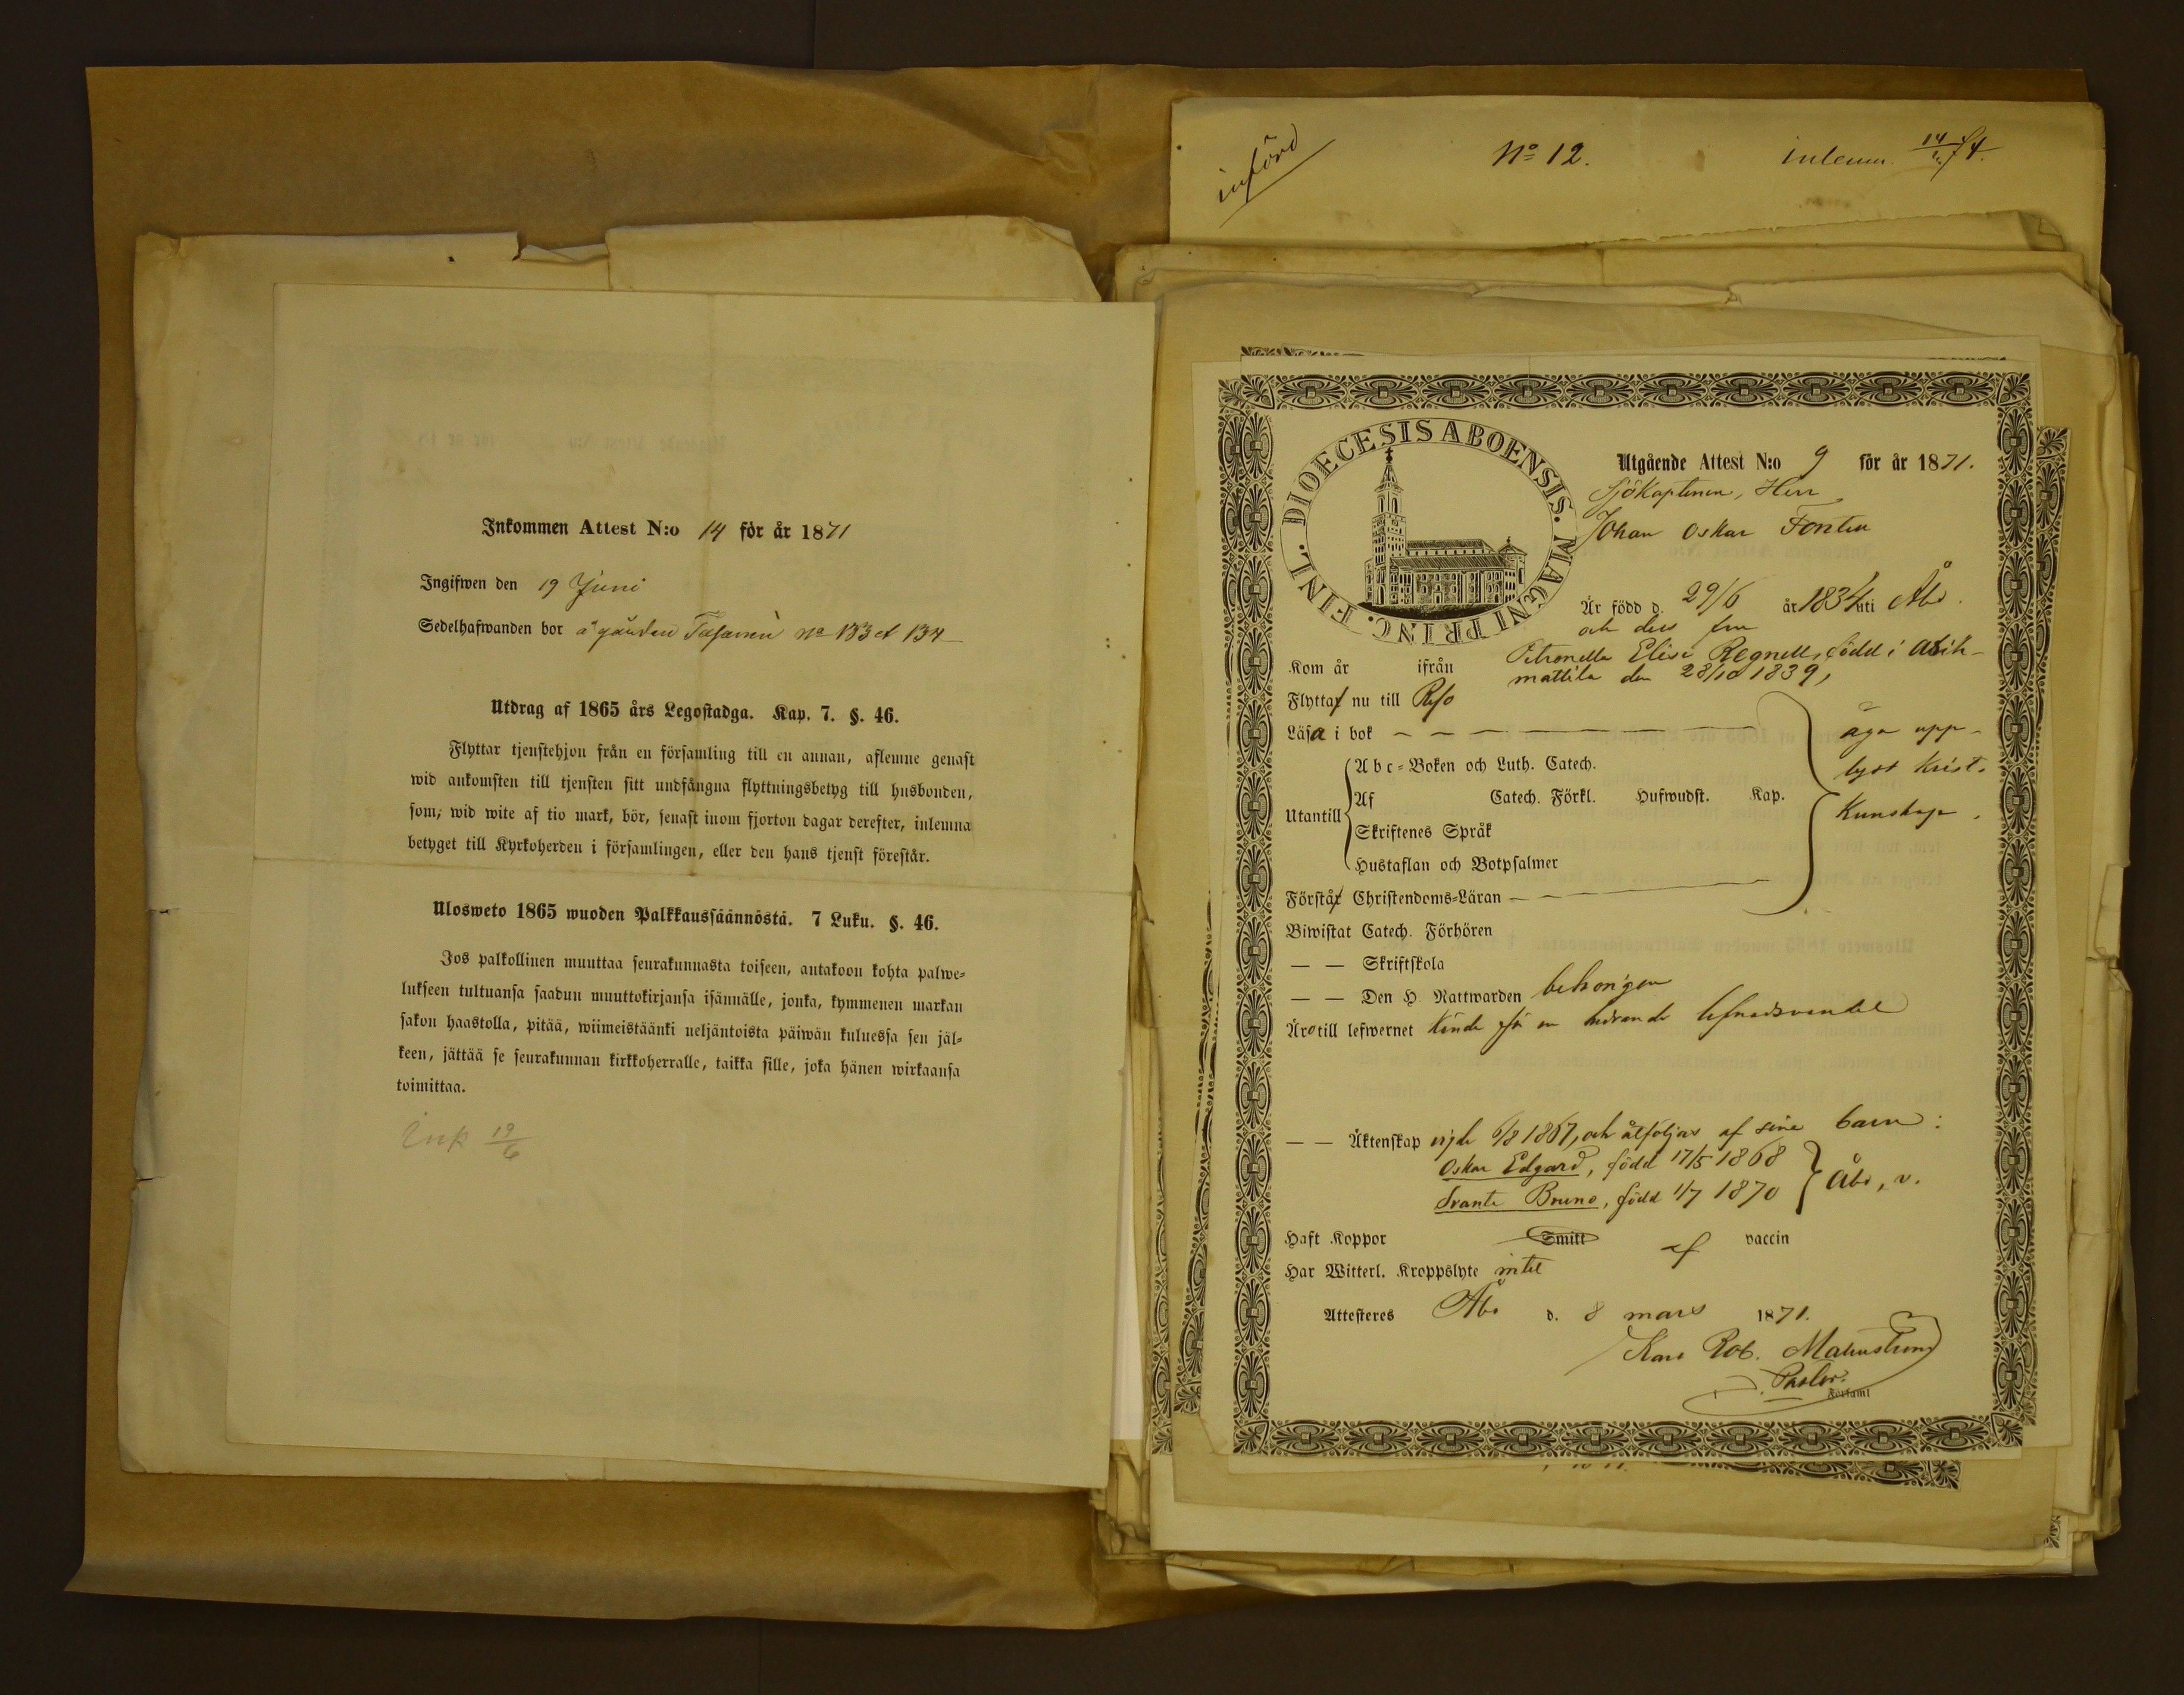 införd
No 12.
inlemn. 14/4 74.
Inkommen Attest N:o 14 för år 1871
Ingifwen den 19 Juni
Sedelhafwanden bor å gården No 133 et 134
Utdrag af 1865 års Legostadga. Kap. 7. §. 46.
Flyttar tjenstehjon från en församling till en annan, aflemne genast
wid ankomsten till tjensten sitt undfångna flyttningsbetyg till husbonden,
som, wid wite af tio mark, bör, senast inom fjorton dagar derefter, inlemna
betyget till Kyrkoherden i församlingen, eller den hans tjenst förestår.
Ulosweto 1865 wuoden Palkkaussäännöstä. 7 Luku. §. 46.
Jos palkollinen muuttaa seurakunnasta toiseen, antakoon kohta palwe-
lukseen tultuansa saadun muuttokirjansa isännälle, jonka, kymmenen markan
sakon haastolla, pitää, wiimeistäänki neljäntoista päiwän kuluessa sen jäl-
keen, jättää se seurakunnan kirkkoherralle, taikka sille, joka hänen wirkaansa
toimittaa.
Ink 19/6
DIOECESIS ABOENSIS. MAGNI PRINC. FINL.
Utgående Attest N:o 9 för år 1871.
Sjökaptenen, Herr
Johan Oskar Fontell
Är född d. 29/6 år 1834 uti Åbo.
och dess fru
Kom år ifrån Petronella Elise Regnell, född i Asik-
mattila den 28/10 1839,
Flyttar nu till Reso
Läsa i bok
äga upp-
lyst Krist.
Kunskap.
Utantill
Abc-Boken och Luth. Catech.
Af Catech. Förkl. Hufwudst. Kap.
Skriftenes Språk
Hustaflan och Botpsalmer
Förstår Christendoms-Läran
Biwistat Catech. Förhören
— — Skriftskola
— — Den H. Nattwarden behörigen
Äro till lefwernet Kände för en hedrande lefnadsvandel
— — Äktenskap 6/8 1867, och åtföljas af sina barn:
Oskar Edgard, född 17/5 1868
Svante Bruno, född 1/7 1870
Åbo, v.
Haft Koppor Smitt af vaccin
Har Witterl. Kroppslyte intet
Attesteres Åbo d. 8 mars 1871.
Karl Rob. Malmström
Pastor.
Församl